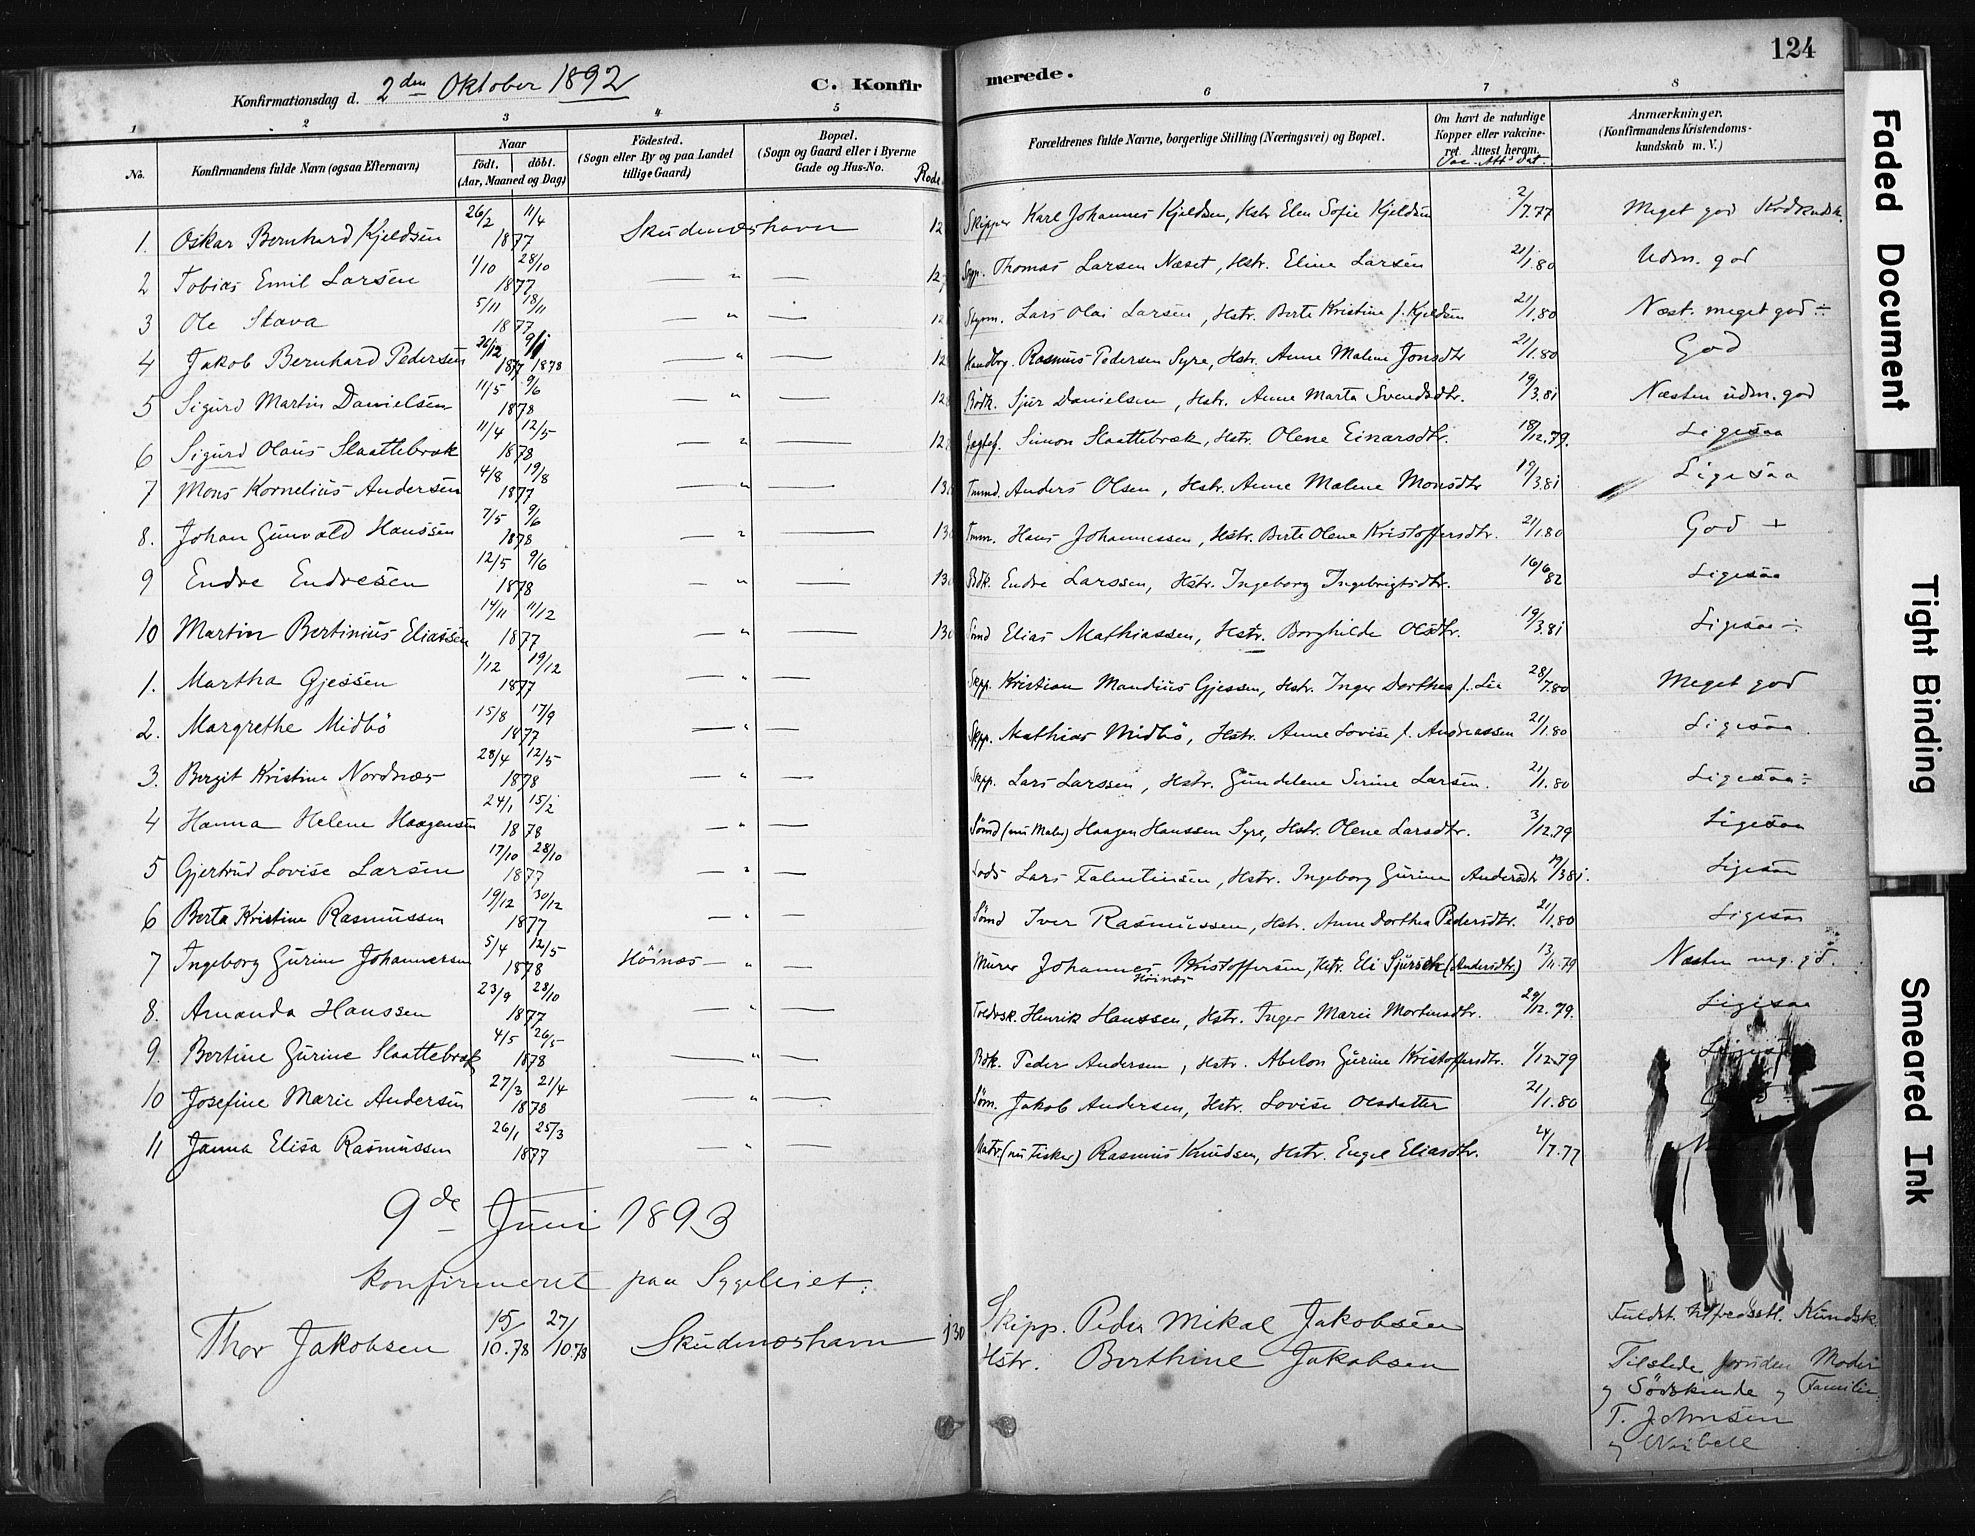 124
Konfirmationsdag d. 2den Oktober 1892 C. Konfirmerede.
1 2 3 4 5 6 7 8
No. Konfirmandens fulde Navn (ogsaa Efternavn) Naar født. døbt. (Aar, Maaned og Dag) Fødested. (Sogn eller By og paa Landet tillige Gaard) Bopæl. (Sogn og Gaard eller i Byerne Gade og Hus-No. Rode Forældrenes fulde Navne, borgerlige Stilling (Næringsvei) og Bopæl. Om havt de naturlige Kopper eller vakcineret. Attest herom. Vac. Att. Dat. Anmærkninger. (Konfirmandens Kristendomskundskab m. V.)
1. Oskar Bernhard Kjeldsen 26/2 11/4 1877 Skudesneshavn 12 Skipper Karl Johannes Kjeldsen, Hstr. Elen Sofie Kjeldsen 2/7.77 Meget god
2 Tobias Emil Larsen 1/10 28/10 1877 — " — 12 Skpp. Thomas Larsen Næset, Hstr. Eline Larsen 21/1.80 Udm. god
3 Ole Stava 5/11 18/11 1877 — " — 12 Styrm. Lars Olai Larsen, Hstr. Berte Kristine f. Kjeldsen 21/1.80 Næst. meget god ÷
4 Jakob Bernhard Pedersen 26/12 1877 9/1 1878 — " — 12 Handlvg. Rasmus Pedersen Syre, Hstr. Anne Malene Jonsdtr 21/1.80 God
5 Sigurd Martin Danielsen 11/5 9/6 1878 — " — 12 Bødk. Sjur Danielsen, Hstr. Anne Marta Svendsdtr. 19/3.81 Næsten udm. god
6 Sigurd Olaus Slaattebræk 11/4 12/5 1878 — " — 12 Simon Slaattebræk, Hstr. Olene Einarsdtr. 18/12.79. Ligesaa
7 Mons Kornelius Andersen 4/8 19/8 1877 — " — 13 Tmmd. Anders Olsen, Hstr. Anne Malene Monsdtr 19/3.81 Ligesaa
8. Johan Gunvald Hanssen 7/5 9/6 1878 — " — 13 Tmm. Hans Johannessen, Hstr. Berte Olene Kristoffersdtr. 21/1.80 God +
9 Endre Endresen 12/5 9/6 1878 — " — 13 Bdk. Endre Larssen, Hstr. Ingeborg Ingebrigtsdtr. 16/6 82 Ligesaa
10 Martin Bertinius Eliassen 14/11 11/12 1877 — " — 130 Smd Elias Mathiassen, Hstr. Borghilde Olsdtr. 19/3.81 Ligesaa ÷
1. Martha Gjessen 1/12 19/12 1877 — " — Skpp. Kristian Mandius Gjessen, Hstr. Inger Dorthea f. Lie 28/7.80 Meget god
2. Margrethe Midbö 15/8 17/9 1877 — " — Skpp. Mathias Midbö, Hstr. Anne Lovise f. Andreassen 21/1.80 Ligesaa
3. Bergit Kristine Nordnæs 28/4 12/5 1878 — " — Skpp. Lars Larssen, Hstr. Gundelene Serine Larsen. 21/1.80 Ligesaa ÷
4 Hanna Helene Haagensen 24/1 15/2 1878 — " — Sömd (nu Maler) Haagen Hanssen Syre, Hstr. Olene Larsdtr. 3/12.79 Ligesaa
5 Gjertrud Lovise Larsen 17/10 28/10 1877 — " — Lods Lars Falentinsen, Hstr. Ingeborg Gurine Andersdtr 19/3 81. Ligesaa
6 Berta Kristine Rasmussen 19/12 30/12 1877 — " — Sömd Iver Rasmussen, Hstr. Anne Dorthea Pedersdtr. 21/1.80 Ligesaa
7 Ingeborg Gurine Johannessen 5/4 12/5 1878 Höinæs — " — Murer Johannes Kristoffersen, Höinæs Hstr. Eli Sjursdtr (Andersdtr.) 13/11.79 Næsten meg. god.
8. Amanda Hanssen 23/9 28/10 1877 — " — Henrik Hanssen, Hstr. Inger Marie Mortensdtr. 29/12.79. Ligesaa
9. Bertine Gurine Slaattebræk 4/5 26/5 1878 — " — Bdk. Peder Andersen, Hstr. Abelon Gurine Kristoffersdtr. 1/12.79 Ligesaa
10 Josefine Marie Andersen 27/3 21/4 1878 — " — Söm. Jakob Andersen, Hstr. Lovise Olsdatter 21/1.80
11 Janna Elisa Rasmussen 26/1 25/3 1877 — " — Matr. (nu Fisker) Rasmus Knudsen, Hstr. Engel Eliasdtr. 24/7.77
9de Juni 1893
Konfirmeret paa Sygeleiet:
Thor Jakobsen 15/10.78 27/10.78 Skudesneshavn 130 Skipp. Peder Mikal Jakobsen Hstr. Berthine Jakobsen Fuldst. tilfredsstl. Kundsk.
Tilstede foruden Moder
og Södskende og Familie
T. Johnsen
og
Faded Document
Tight Binding
Smeared Ink